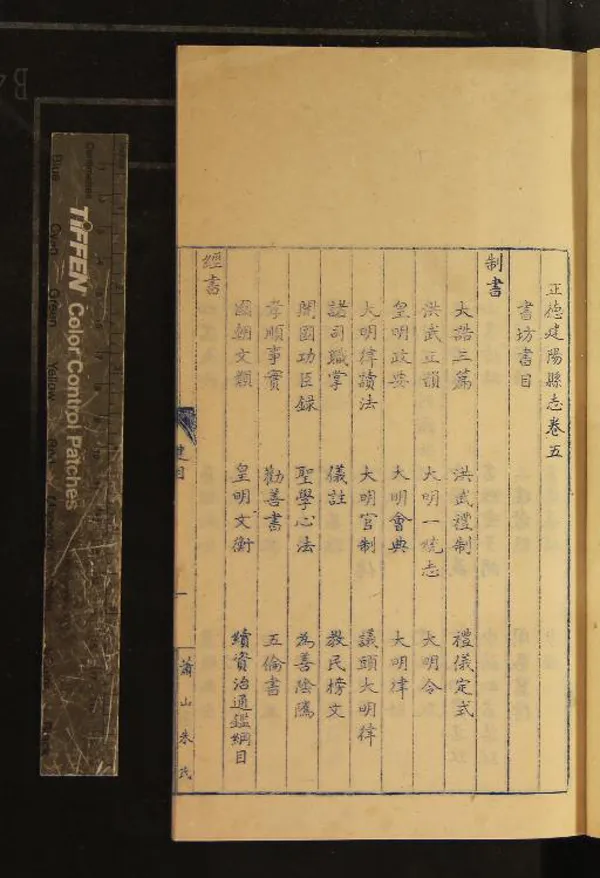 正德建陽縣志卷五
書坊書目
制書
大誥三篇 洪武禮制 禮儀定式
洪武正韻 大明一統志 大明令
皇明政要 大明會典 大明律
大明律讀法 大明官制 議頭大明律
諸司職掌 儀註 教民榜文
開國功臣錄 聖學心法 為善陰隲
孝順事實 勸善書 五倫書
國朝文類 皇明文衡 續資治通鑑綱目
經書
建目
一
蕭山朱氏
TIFFEN Color Control Patches
Centimetres
Blue
Cyan
Green
Yellow
Red